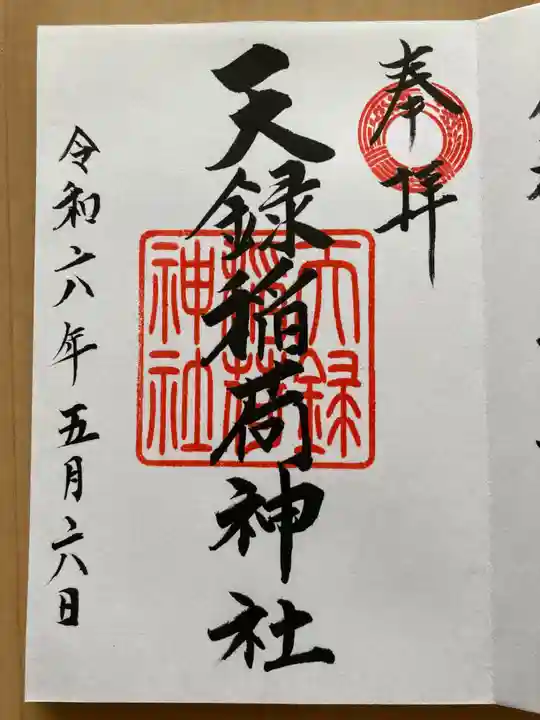 奉拝
天録稲荷神社
天録稲荷神社
令和六年五月六日